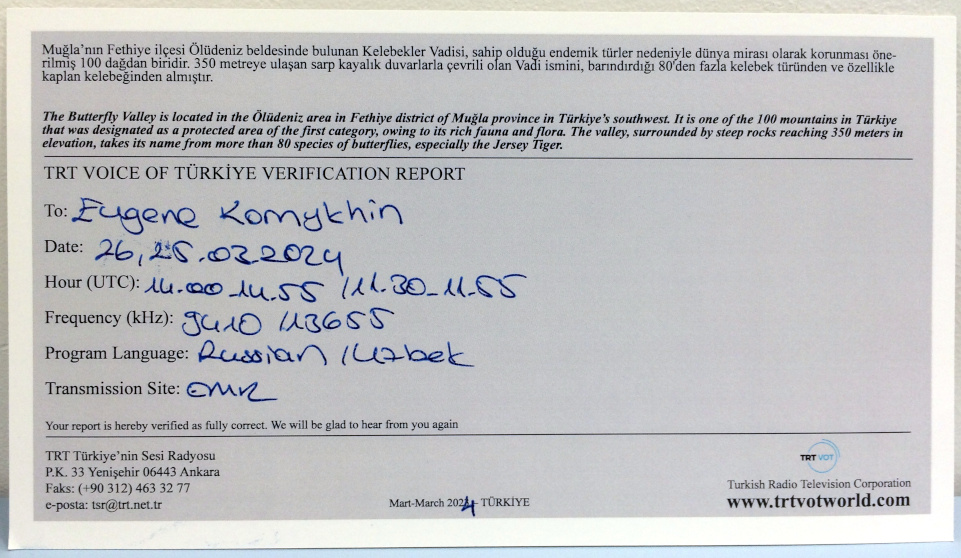 Muğla'nın Fethiye ilçesi Ölüdeniz beldesinde bulunan Kelebekler Vadisi, sahip olduğu endemik türler nedeniyle dünya mirası olarak korunması öne-
rilmiş 100 dağdan biridir. 350 metreye ulaşan sarp kayalık duvarlarla çevrili olan Vadi ismini, barındırdığı 80'den fazla kelebek türünden ve özellikle
kaplan kelebeğinden almıştır.
The Butterfly Valley is located in the Ölüdeniz area in Fethiye district of Muğla province in Türkiye's southwest. It is one of the 100 mountains in Türkiye
that was designated as a protected area of the first category, owing to its rich fauna and flora. The valley, surrounded by steep rocks reaching 350 meters in
elevation, takes its name from more than 80 species of butterflies, especially the Jersey Tiger.
TRT VOICE OF TÜRKİYE VERIFICATION REPORT
To: Eugene Komykhin
Date: 26, 25.03.2024
Hour (UTC): 14.00-14.55 / 11.30-11.55
Frequency (kHz): 9410 / 13655
Program Language: Russian / Uzbek
Transmission Site: EMR
Your report is hereby verified as fully correct. We will be glad to hear from you again
TRT Türkiye'nin Sesi Radyosu
P.K. 33 Yenişehir 06443 Ankara
Faks: (+90 312) 463 32 77
e-posta: tsr@trt.net.tr
Mart-March 2024 - TÜRKİYE
TRT VOT
Turkish Radio Television Corporation
www.trtvotworld.com